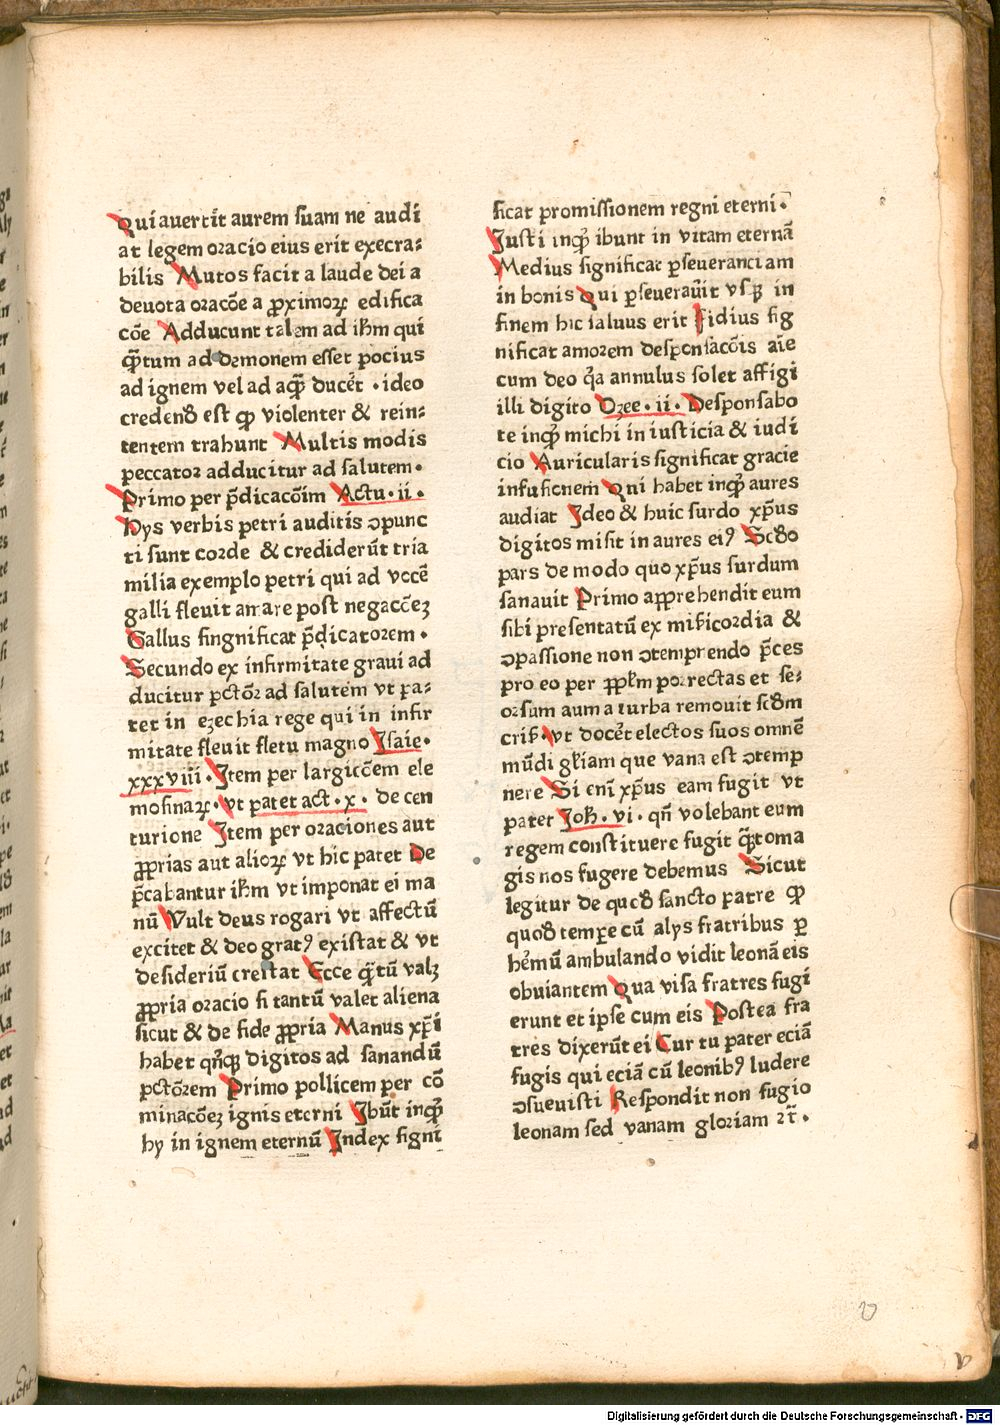 Qui auertit aurem suam ne audi
at legem oracio eius erit execra⸗
bilis Mutos facit a laude dei a
deuota oracōe a ꝓximoꝝ edifica
cōe Adducunt talem ad ihm̄ qui
q̄ꝫtum ad demonem esset pocius
ad ignem vel ad aqꝫ̄ ducēt · ideo
credend̄ est qꝫ violenter & rein⸗
tentem trahunt Multis modis
peccator adducitur ad salutem ·
Primo per p̄dicacōim Actu · ii ·
Hys verbis petri auditis ↄpunc
ti sunt corde & crediderūt tria
milia exemplo petri qui ad vocē
galli fleuit amare post negaccēꝫ
Gallus singnificat p̄dicatorem ·
Secundo ex infirmitate graui ad
ducitur pctōꝛ ad salutem vt pa⸗
tet in ezechia rege qui in infir
mitate fleuit fletu magno Isaie ·
xxxviii · Item per largiccēm ele
mosinaꝝ · vt patet act · x · de cen
turione Item per oraciones aut
ꝓprias aut alioꝝ vt hic patet De
p̄cabantur ihm̄ vt imponat ei ma
nū Vult deus rogari vt affectū
excitet & deo gratꝰ existat & vt
desideriū crescat Ecce qꝫ̄tū valꝫ
ꝓpria oracio si tantū valet aliena
sicut & de fide ꝓpria Manus xp̄i
habet qn̄qꝫ digitos ad sanandū
pctōrem Primo pollicem per cō
minacōeꝫ ignis eterni Ibūt inqꝫ̄
hy in ignem eternū Index signi
ficat promissionem regni eterni ·
Iusti inqꝫ̄ ibunt in vitam eternā
Medius significat ꝑseueranciam
in bonis Qui ꝑseuerauīt vsqꝫ in
finem hic saluus erit Fidius sig
nificat amorem desponsacōis aīe
cum deo qꝛ̄a annulus solet affigi
illi digito Ozee · ii · Desponsabo
te inqꝫ̄ michi in iusticia & iudi
cio Auricularis significat gracie
infusionem Qui habet inqꝫ̄ aures
audiat Ideo & huic surdo xp̄us
digitos misit in aures eiꝰ Scd̄o
pars de modo quo xp̄us surdum
sanauit Primo apprehendit eum
sibi presentatū ex mificordia &
ↄpassione non ↄtemprendo p̄ces
pro eo per ꝓpl̄m porrectas et se⸗
orsum aum a turba remouit scd̄m
cris̄ · vt docēt electos suos omnē
mūdi gl̄iam que vana est ↄtemp
nere Si eni̅ xp̄us eam fugit vt
patet Joh̄ · vi · qn̄ volebant eum
regem constituere fugit qꝫ̄toma
gis nos fugere debemus Sicut
legitur de quod̄ sancto patre qꝫ
quod̄ tempe cū alys fratribus ꝑ
hēmū ambulando vidit leonā eis
obuiantem Qua visa fratres fugi
erunt et ipse cum eis Postea fra
tres dixerūt ei Cur tu pater eciā
fugis qui eciā cū leonibꝰ ludere
ↄsueuisti Respondit non fugio
leonam sed vanam gloriam ⁊t̄ ·
v
Digitalisierung gefördert durch die Deutsche Forschungsgemeinschaft - DFG